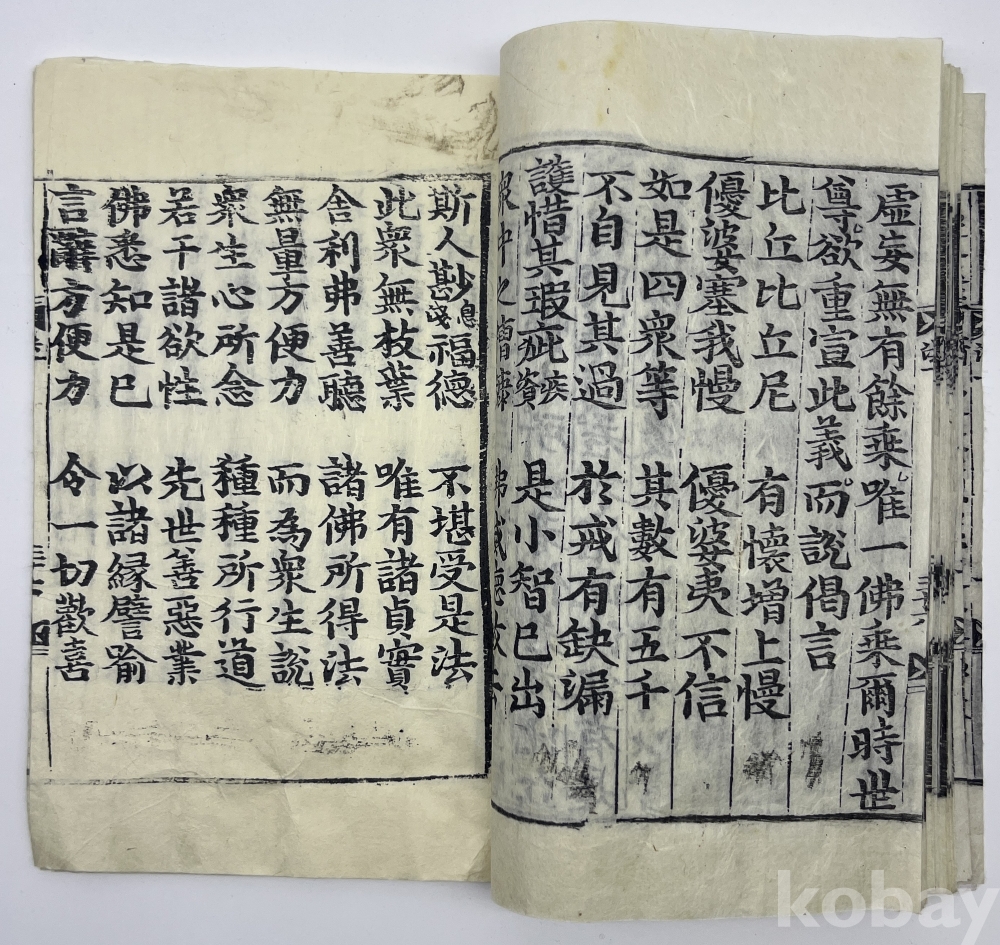 虛妄無有餘乘唯一佛乘爾時世
尊欲重宣此義而說偈言
比丘比丘尼 有懷增上慢
優婆塞我慢 優婆夷不信
如是四衆等 其數有五千
不自見其過 於戒有缺漏
護惜其瑕疵 疾資 是小智已出
衆中之糟糠 佛威德故去
斯人尟 尠 福德 不堪受是法
此衆無枝葉 唯有諸貞實
舍利弗善聽 諸佛所得法
無量方便力 而為衆生說
衆生心所念 種種所行道
若干諸欲性 先世善惡業
佛悉知是已 以諸緣譬喻
言辭方便力 令一切歡喜
kobay